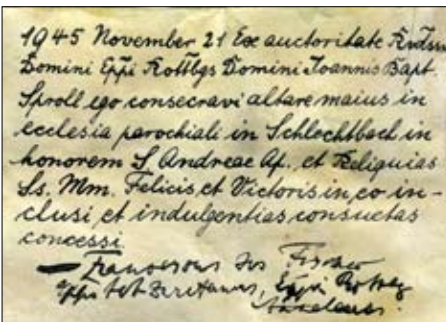 1945 November 21 Ex auctoritate Rvdsm
Domini Eppi Rottbgs Domini Joannis Bapt.
Sproll ego consecravi altare maius in
ecclesia parochiali in Schlechtbach in
honorem S. Andreae Ap. et Reliquias
Ss. Mm. Felicis et Victoris in eo in-
clusi et indulgentias consuetas
concessi.
Franciscus Jos Fischer
Eppi